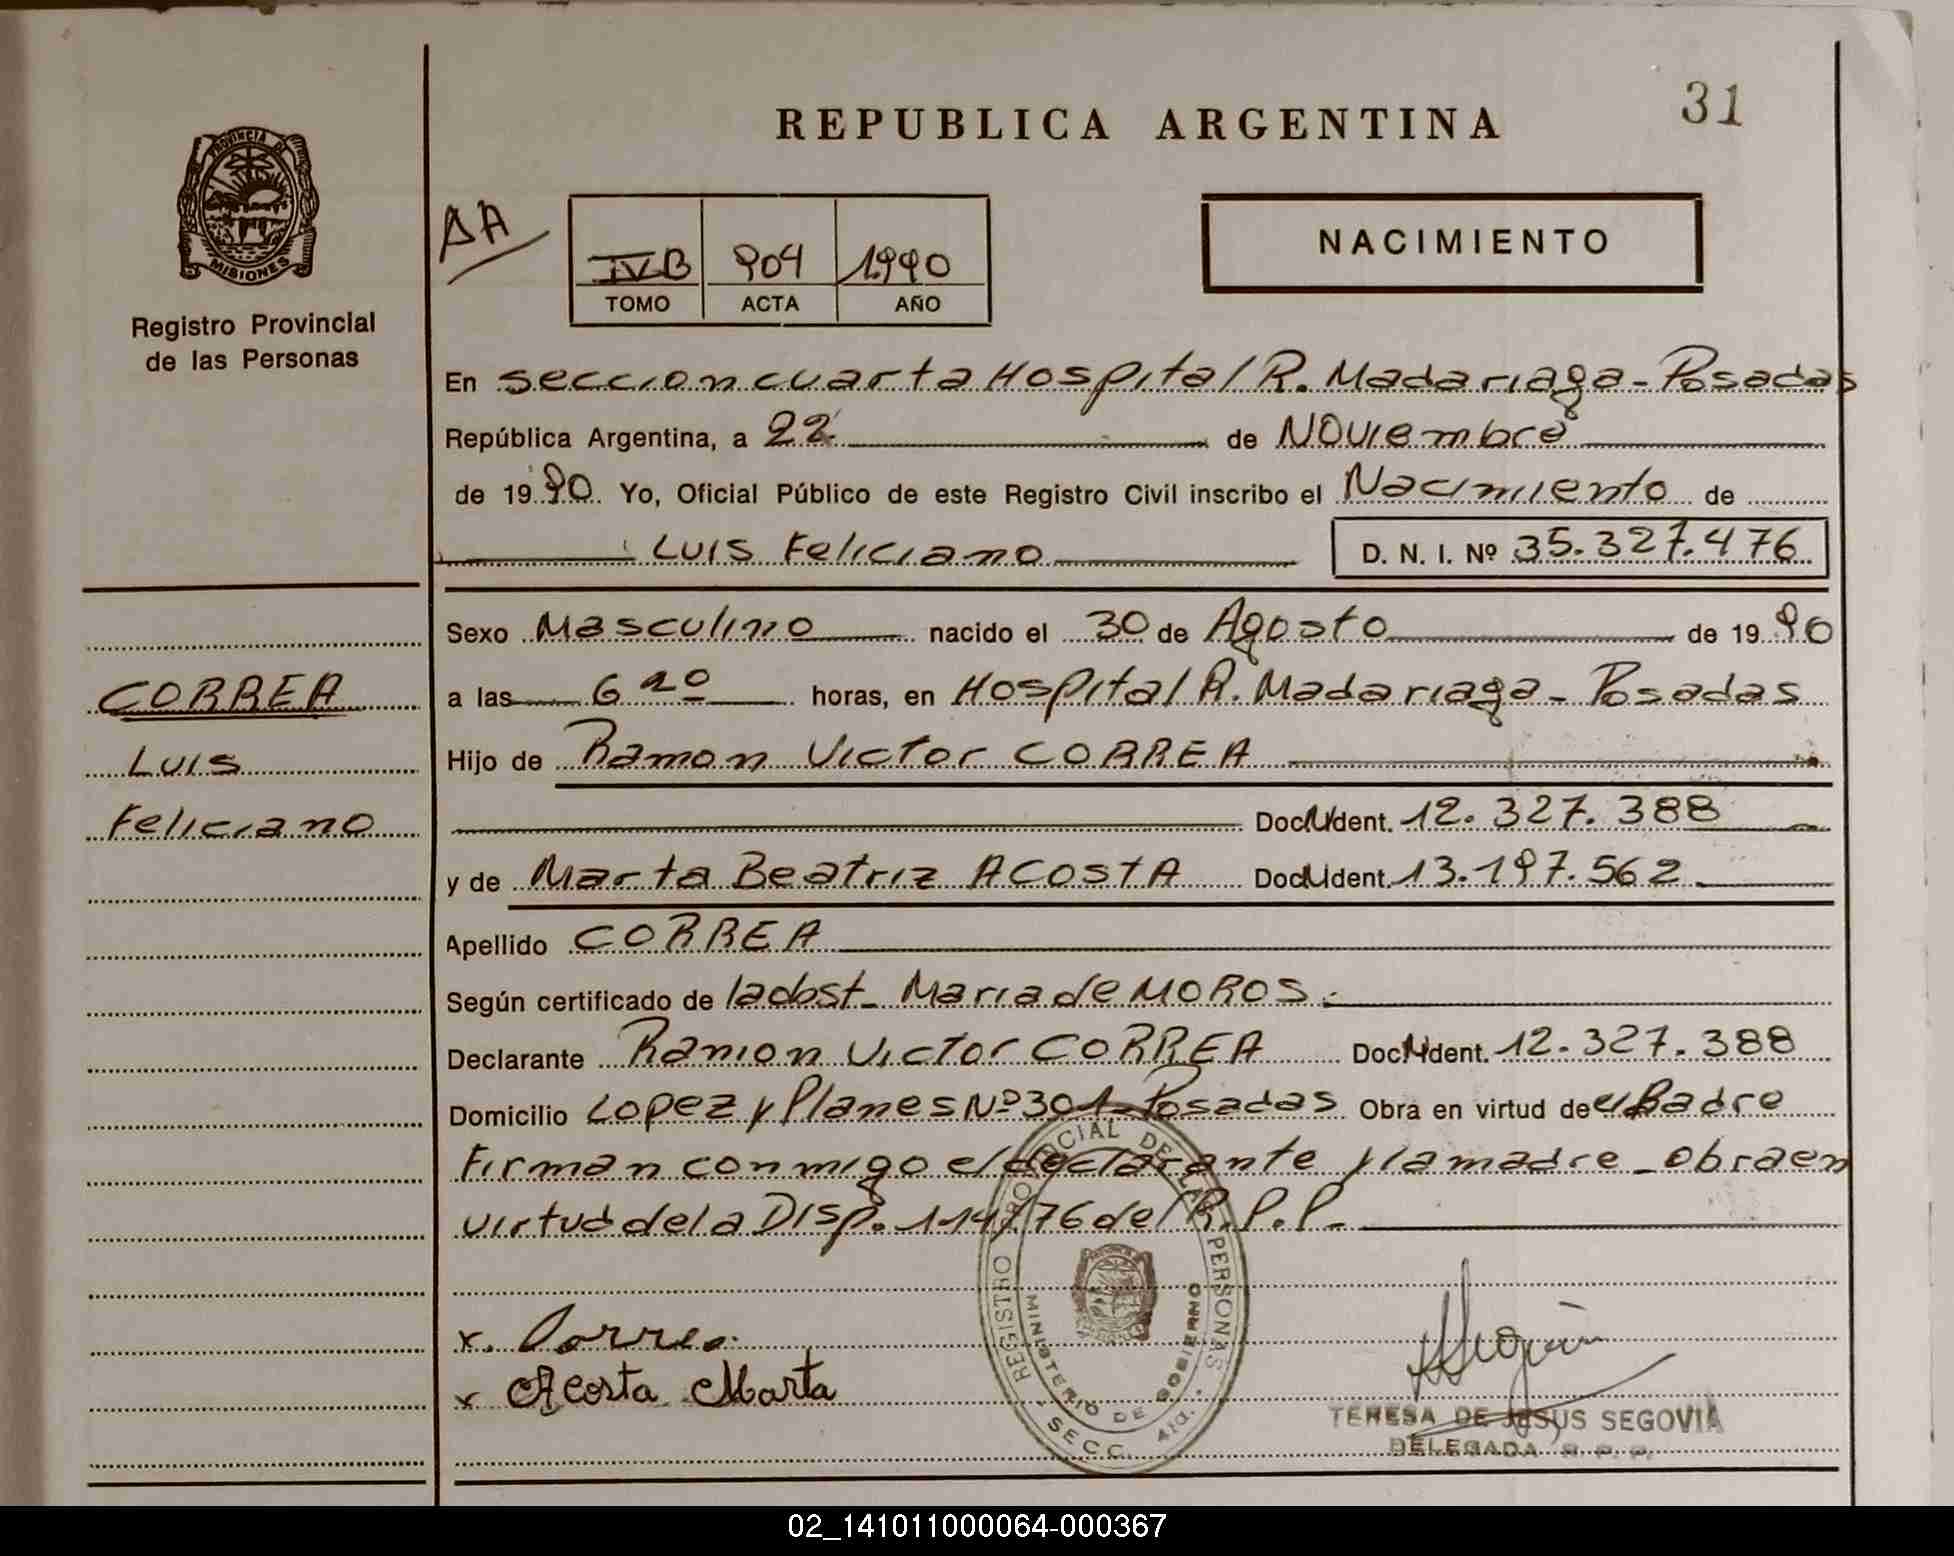 REPUBLICA ARGENTINA
31
PROVINCIA DE
MISIONES
Registro Provincial
de las Personas
AA
IVB 904 1990
TOMO ACTA AÑO
NACIMIENTO
En seccion cuarta Hospital R. Madariaga - Posadas
República Argentina, a 22 de Noviembre
de 1990 Yo, Oficial Público de este Registro Civil inscribo el Nacimiento de
Luis Feliciano D. N. I. Nº 35.327.476
Sexo Masculino nacido el 30 de Agosto de 1990
a las 6 20 horas, en Hospital R. Madariaga - Posadas
Hijo de Ramon Victor CORREA
Doc. Ident. 12.327.388
y de Marta Beatriz ACOSTA Doc. Ident. 13.197.562
Apellido CORREA
Según certificado de la obst- Maria de MOROS.-
Declarante Ramon Victor CORREA Doc. Ident. 12.327.388
Domicilio Lopez y Planes Nº 301- Posadas Obra en virtud de el Padre
Firman conmigo el declarante y la madre - obra en
virtud de la Disp. 114/76 del R.P.P.-
CORREA
Luis
Feliciano
x. Correa.
x Acosta Marta
REGISTRO PROVINCIAL DE LAS PERSONAS
MINISTERIO DE GOBIERNO
SECC. 4ta.
TERESA DE JESUS SEGOVIA
DELEGADA R. P. P.
02_141011000064-000367